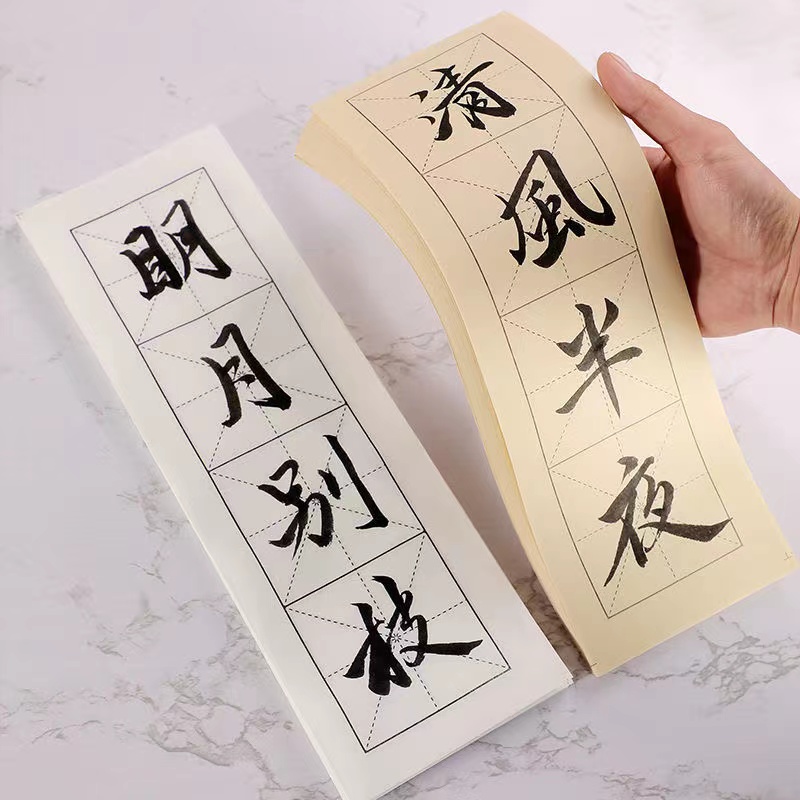 明月别枝
清風半夜